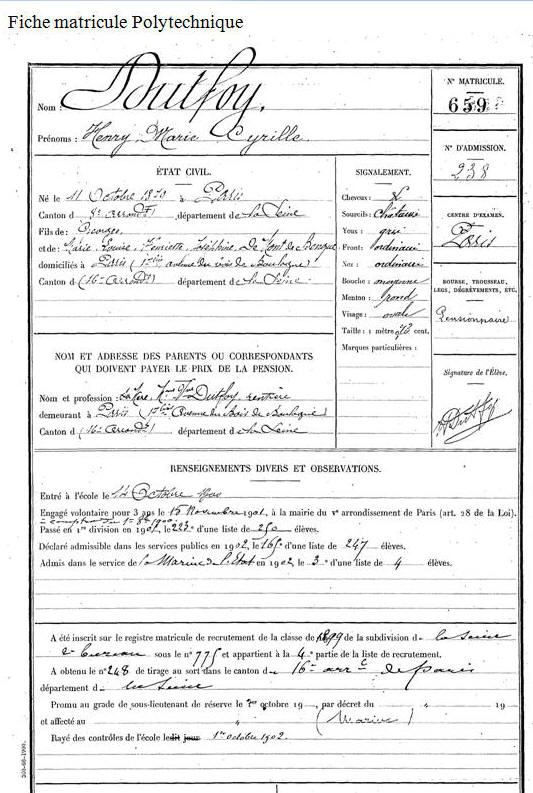 Fiche matricule Polytechnique
Nom : Dutfoy,
Prénoms : Henry Marie Cyrille
N° MATRICULE.
659
N° D'ADMISSION.
238
CENTRE D'EXAMEN.
Paris
BOURSE, TROUSSEAU,
LEGS, DÉGRÈVEMENTS, ETC.
Pensionnaire
Signature de l'Élève.
ÉTAT CIVIL.
Né le 11 Octobre à Paris
Canton d 8e arrondt, département de la Seine
Fils de : Georges,
et de : Marie Louise, Henriette, De Mont de Benque
domiciliés à Paris ( avenue du bois de Boulogne)
Canton d (16e arrondt) département de la Seine
SIGNALEMENT.
Cheveux :
Sourcils : Chatains
Yeux : gris
Front : ordinaire
Nez : ordinaire
Bouche : moyenne
Menton : rond
Visage : ovale
Taille : 1 mètre cent.
Marques particulières :
NOM ET ADRESSE DES PARENTS OU CORRESPONDANTS
QUI DOIVENT PAYER LE PRIX DE LA PENSION.
Nom et profession : La Mère, Mme Vve Dutfoy, rentière
demeurant à Paris ( Avenue du Bois de Boulogne)
Canton d (16e arrondt) département de la Seine
RENSEIGNEMENTS DIVERS ET OBSERVATIONS.
Entré à l'école le Octobre
Engagé volontaire pour 3 ans le 15 Novembre 1901, à la mairie du Ve arrondissement de Paris (art. 28 de la Loi).
à compter du 1er 8bre 1900
Passé en 1re division en 1901, le 223e d'une liste de 250 élèves.
Déclaré admissible dans les services publics en 1902, le 165e d'une liste de 247 élèves.
Admis dans le service de la Marine de l'Etat en 1902, le 3e d'une liste de 4 élèves.
A été inscrit sur le registre matricule de recrutement de la classe de 1899 de la subdivision de la Seine
2e bureau sous le n° 775 et appartient à la 4e partie de la liste de recrutement.
A obtenu le n° 248 de tirage au sort dans le canton du 16e arrt de Paris
département de la Seine
Promu au grade de sous-lieutenant de réserve le 1er octobre 19 , par décret du " 19
et affecté au " (Marine)
Rayé des contrôles de l'école ledit jour 1er octobre 1902.